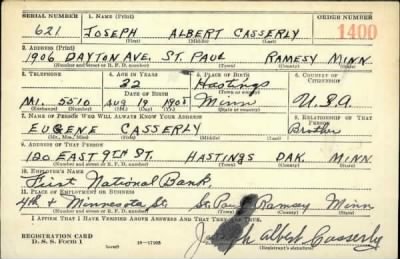 SERIAL NUMBER 1. NAME (Print) ORDER NUMBER
621 JOSEPH ALBERT CASSERLY 1400
(First) (Middle) (Last)
2. ADDRESS (Print)
1906 DAYTON AVE. ST. PAUL RAMESY MINN.
(Number and street or R. F. D. number) (Town) (County) (State)
3. TELEPHONE 4. AGE IN YEARS 5. PLACE OF BIRTH 6. COUNTRY OF CITIZENSHIP
Hastings
DATE OF BIRTH (Town or county)
MI. 5510 Aug 19 Minn U.S.A
(Exchange) (No.) (Mo.) (Day) (Yr.) (State or country)
7. NAME OF PERSON WHO WILL ALWAYS KNOW YOUR ADDRESS 8. RELATIONSHIP OF THAT PERSON
EUGENE CASSERLY Brother
(Mr., Mrs., Miss) (First) (Middle) (Last)
9. ADDRESS OF THAT PERSON
120 EAST 9TH ST. HASTINGS DAK. MINN.
(Number and street or R. F. D. number) (Town) (County) (State)
10. EMPLOYER'S NAME
First National Bank,
11. PLACE OF EMPLOYMENT OR BUSINESS
4th & Minnesota St. St. Paul Ramsey Minn
(Number and street or R. F. D. number) (Town) (County) (State)
I AFFIRM THAT I HAVE VERIFIED ABOVE ANSWERS AND THAT THEY ARE TRUE.
REGISTRATION CARD
D. S. S. FORM 1 (over) 16—17105 Joseph Albert Casserly
(Registrant's signature)